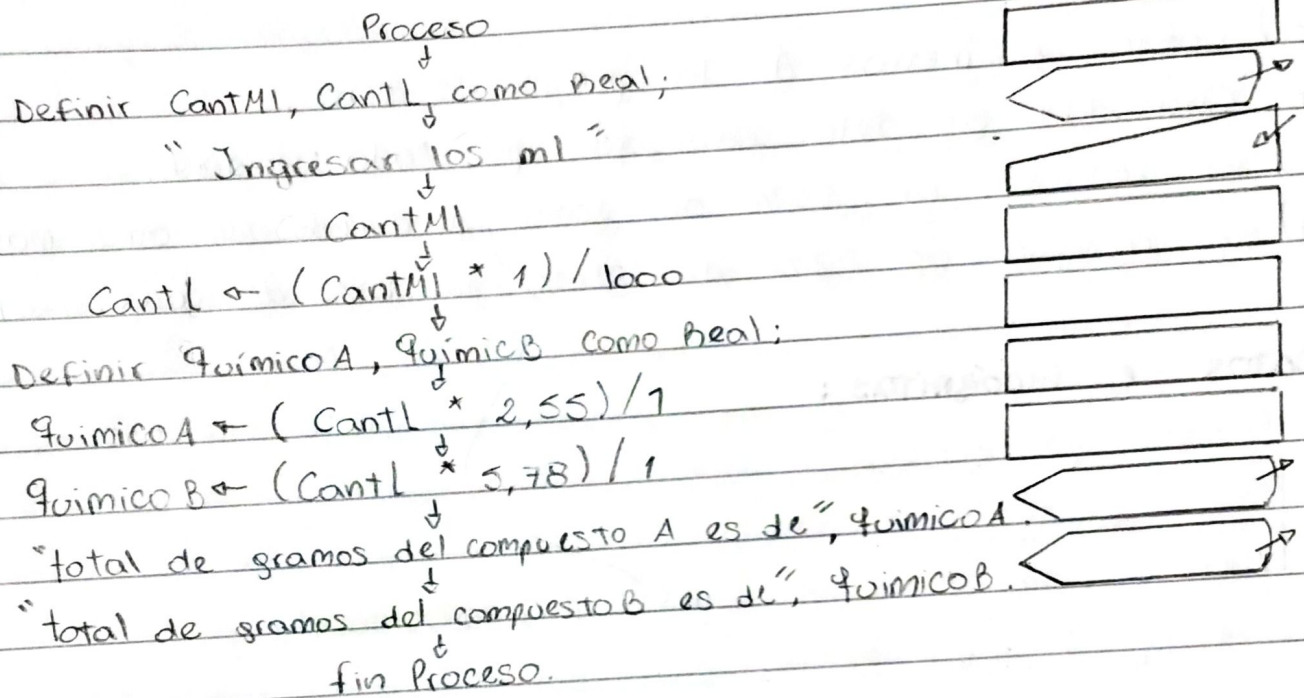 Proceso
Definir CantMl, CantL, como Real;
"Ingresar los ml"
CantMl
CantL ← (CantMl * 1) / 1000
Definir químicoA, químicB como Real;
quimicoA ← ( CantL * 2,55)/1
quimicoB ← (CantL * 5,78)/1
"total de gramos del compuesto A es de", quimicoA.
"total de gramos del compuesto B es de", quimicoB.
fin Proceso.